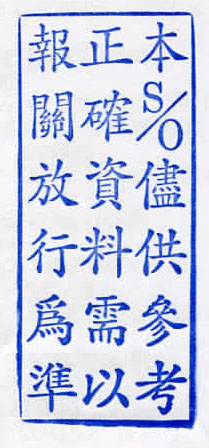 本S/O儘供參考
正確資料需以
報關放行為準